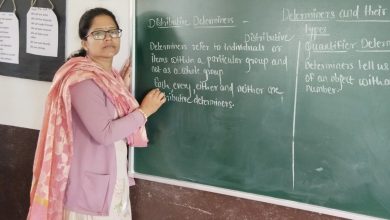 Distributive Determiners
Distributive
Determiners refer to Individuals or
Items within a particular group and
not as a whole group.
Each, every, either and neither are
distributive determiners.
Determiners and their
types
Quantifier Deter
Determiners tell us
of an object witho
number.